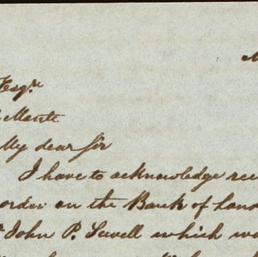 Esqre
My dear Sir
I have to acknowledge rece
order on the Bank of Lond
John P. Sewell which wa